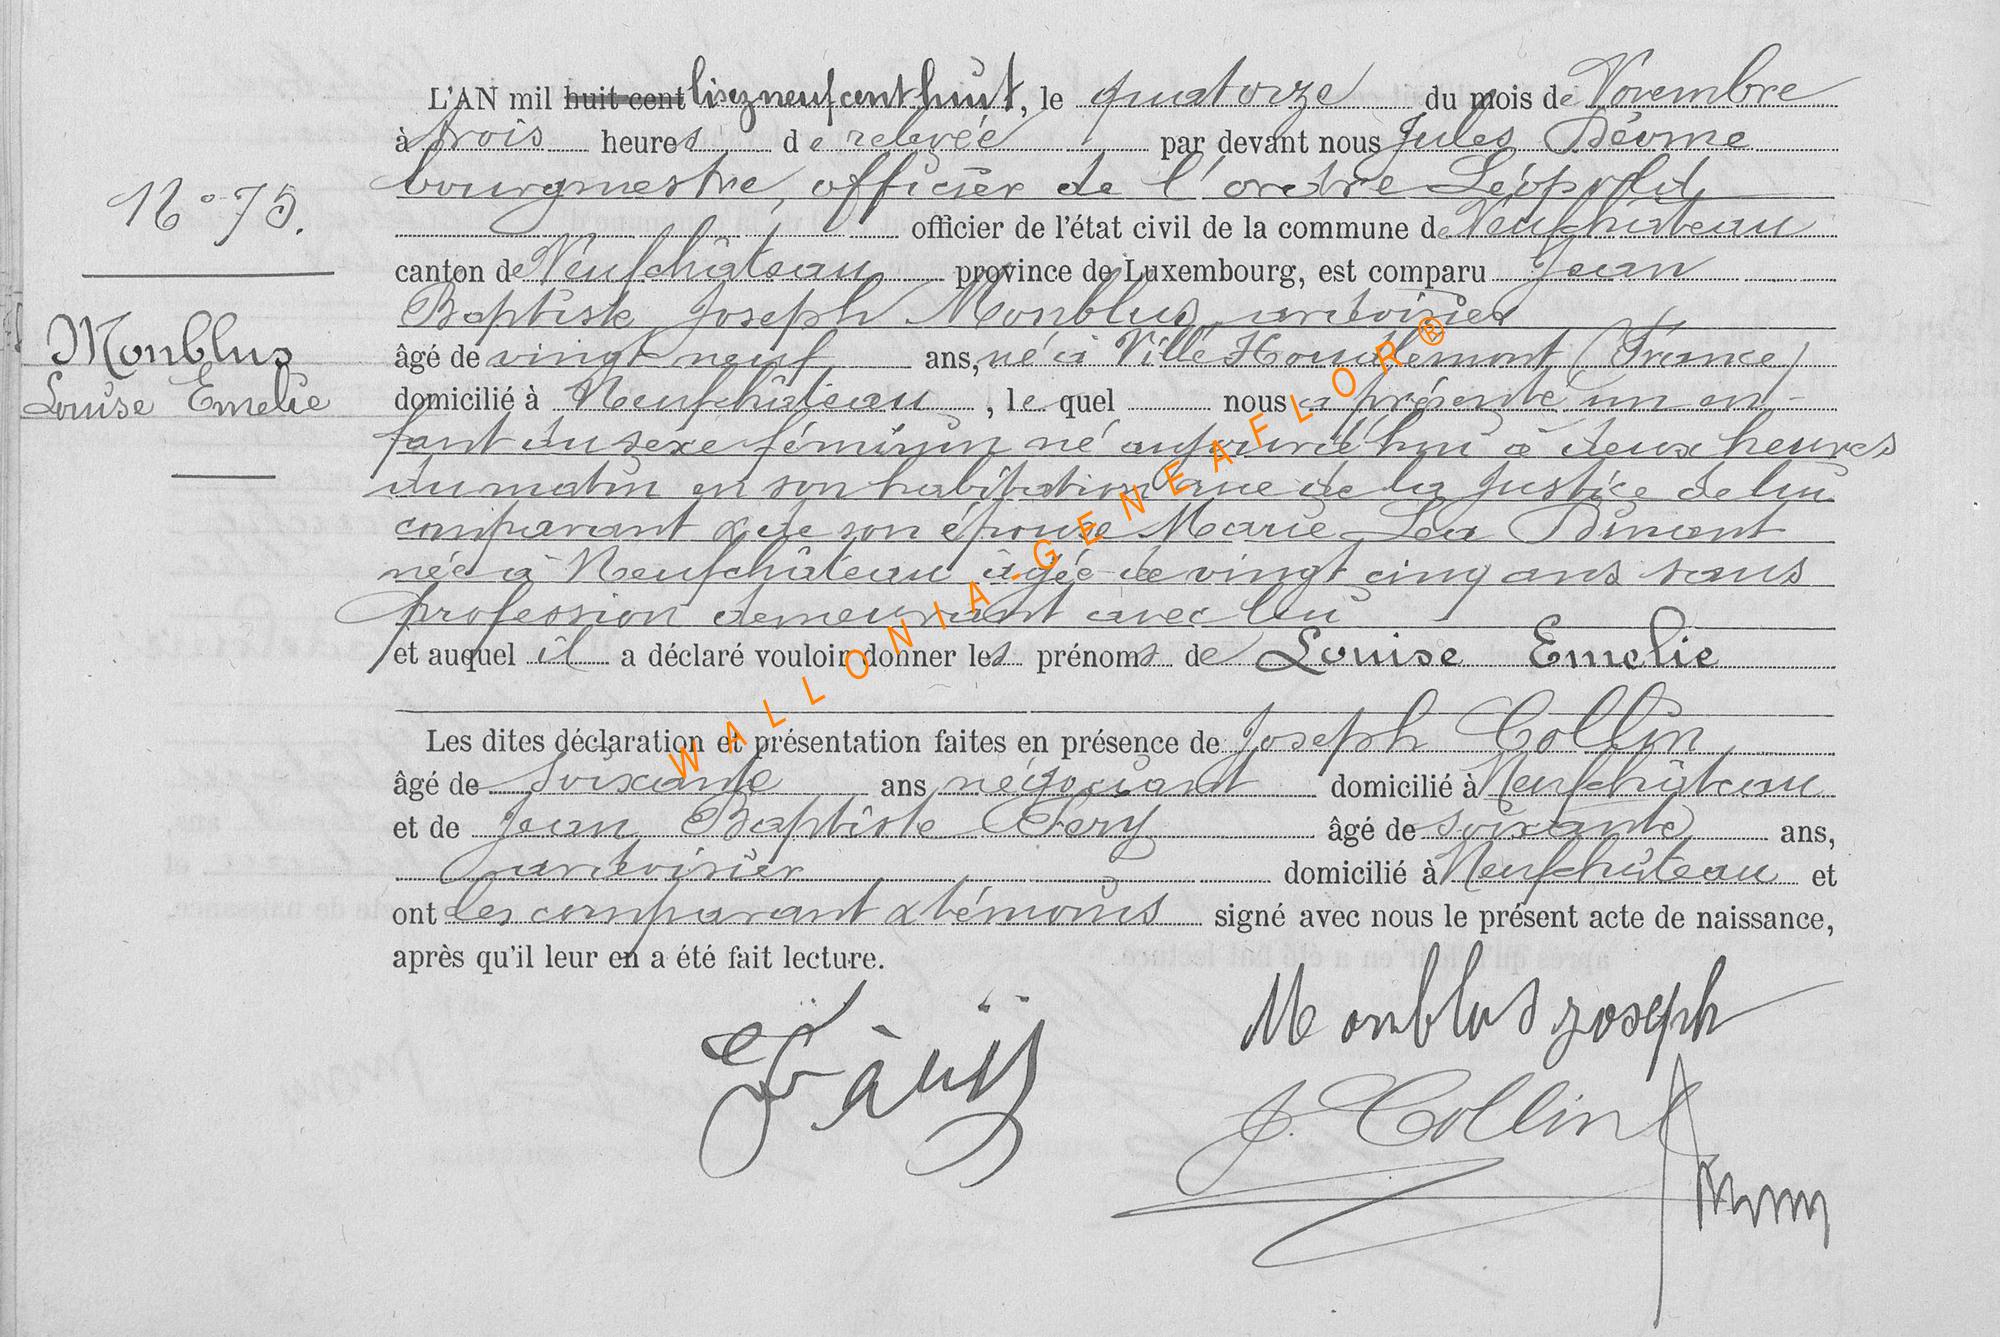 L'AN mil huit cent lisez neuf cent huit, le quatorze du mois de Novembre
à trois heures de relevée par devant nous Jules
bourgmestre, officier de l'ordre Léopold,
N° 75.
officier de l'état civil de la commune de Neufchâteau
canton de Neufchâteau province de Luxembourg, est comparu Jean
Baptiste Joseph Monblus ardoisier
Monblus
âgé de vingt neuf ans, né à Ville Houdlémont (France)
Louise Emelie
domicilié à Neufchâteau, le quel nous a présenté un en-
fant du sexe féminin né aujourd'hui à deux heures
du matin en son habitation rue de la Justice de lui
comparant & de son épouse Marie Léa Dimont
née à Neufchâteau âgée de vingt cinq ans sans
profession demeurant avec lui
et auquel il a déclaré vouloir donner les prénoms de Louise Emelie
Les dites déclaration et présentation faites en présence de Joseph Collin
âgé de soixante ans négociant domicilié à Neufchâteau
et de Jean Baptiste Fery âgé de soixante ans,
ardoisier domicilié à Neufchâteau et
ont les comparant & témoins signé avec nous le présent acte de naissance,
après qu'il leur en a été fait lecture.
Monblus joseph
J. Collin
WALLONIA-GENEAFLOR®